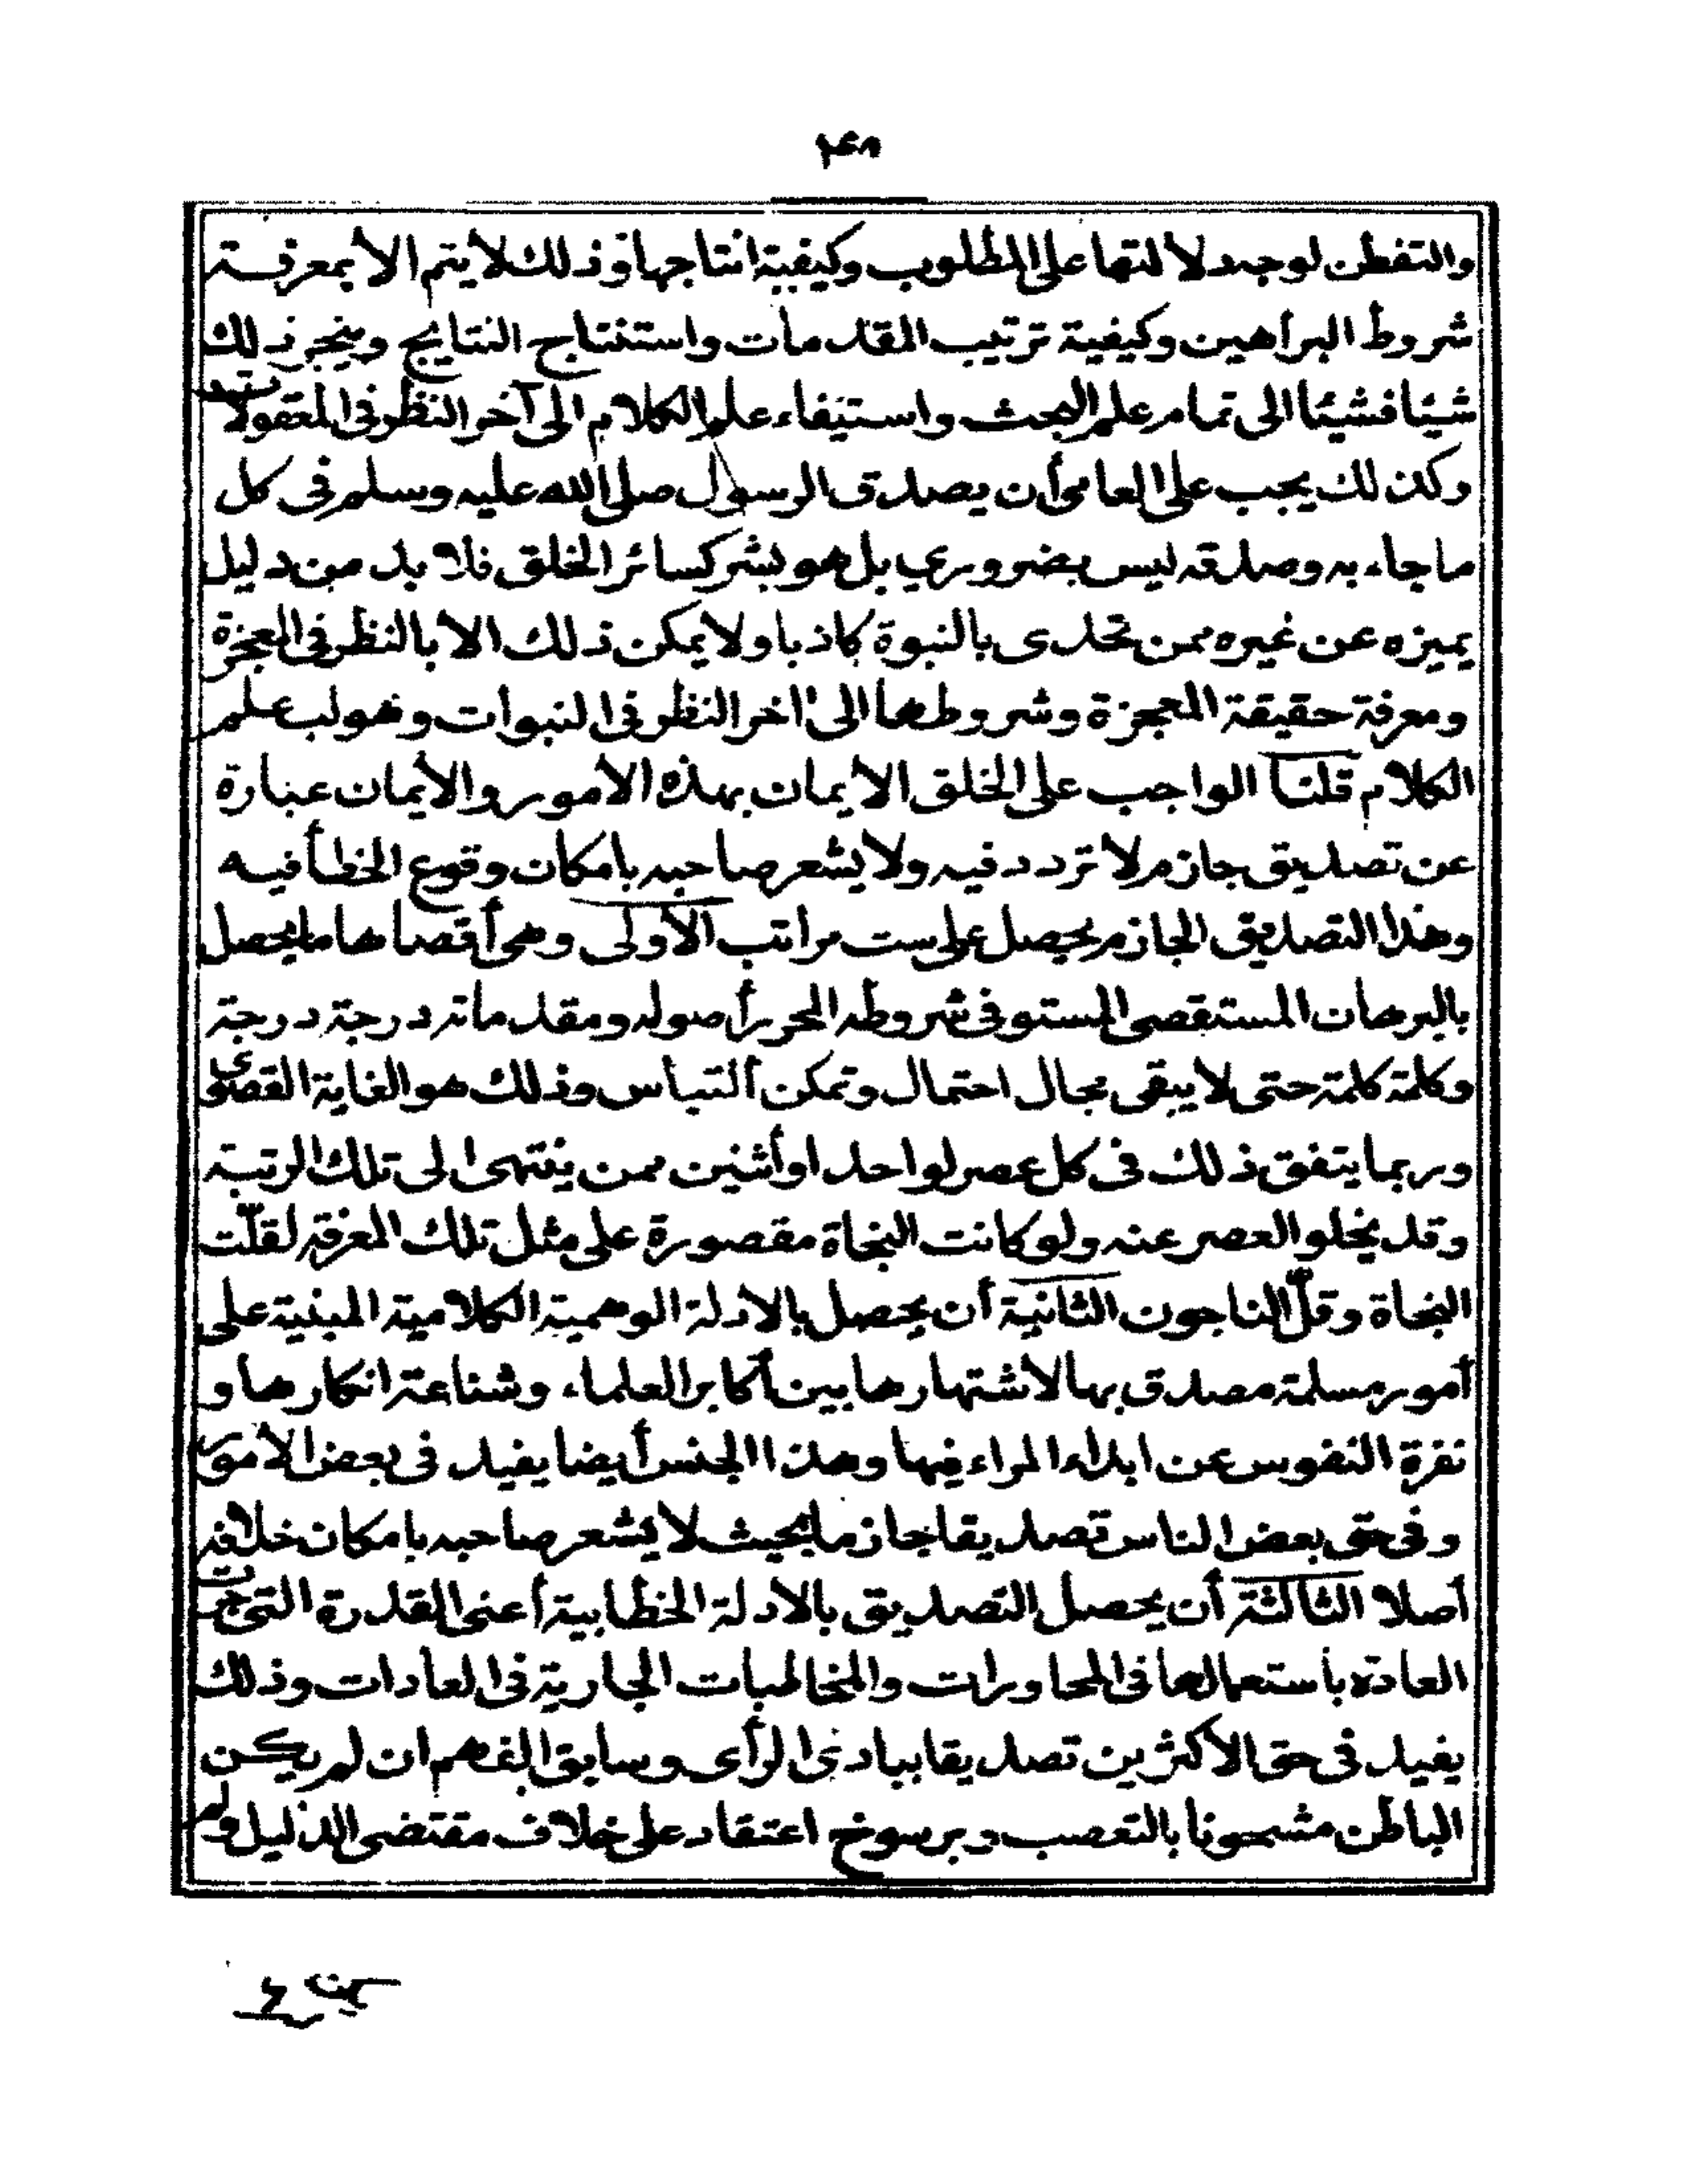 والتفطن لوجه دلالتها على المطلوب وكيفية انتاجها وذلك لا يتم الا بمعرفة
شروط البراهين وكيفية ترتيب المقدمات واستنتاج النتايج وينجر ذلك
شيئا فشيئا الى تمام علم البحث واستيفاء علم الكلام الى آخر النظر فى المعقولات
وكذلك يجب على العامى أن يصدق الرسول صلى الله عليه وسلم فى كل
ما جاء به وصدقه ليس بضروري بل هو بشر كسائر الخلق فلا بد من دليل
يميزه عن غيره ممن تحدى بالنبوة كاذبا ولا يمكن ذلك الا بالنظر فى المعجزة
ومعرفة حقيقة المعجزة وشروطها الى اخر النظر فى النبوات وهو لب علم
الكلام قلنا الواجب على الخلق الايمان بهذه الأمور والأيمان عبارة
عن تصديق جازم لا تردد فيه ولا يشعر صاحبه بامكان وقوع الخطأ فيه
وهذا التصديق الجازم يحصل على ست مراتب الأولى وهى أقصاها ما يحصل
بالبرهان المستقصى المستوفى شروطه المحرر أصوله ومقدماته درجة درجة
وكلمة كلمة حتى لا يبقى مجال احتمال وتمكن التباس وذلك هو الغاية القصوى
وربما يتفق ذلك فى كل عصر لواحد او أثنين ممن ينتهى الى تلك الرتبة
وقد يخلو العصر عنه ولو كانت النجاة مقصورة على مثل تلك المعرفة لقلّت
النجاة وقلّ الناجون الثانية أن يحصل بالادلة الوهمية الكلامية المبنية على
أمور مسلمة مصدق بها لاشتهارها بين أكابر العلماء وشناعة انكارها و
نفرة النفوس عن ابداء المراء فيها وهذا الجنس أيضا يفيد فى بعض الأمور
وفى حق بعض الناس تصديقا جازما بحيث لا يشعر صاحبه بامكان خلافه
أصلا الثالثة أن يحصل التصديق بالادلة الخطابية أعنى القدرة التى جرت
العادة بأستعمالها فى المحاورات والمخاطبات الجارية فى العادات وذلك
يفيد فى حق الأكثرين تصديقا ببادئ الرأى وسابق الفهم ان لم يكن
الباطن مشحونا بالتعصب وبرسوخ اعتقاد على خلاف مقتضى الدليل ولم